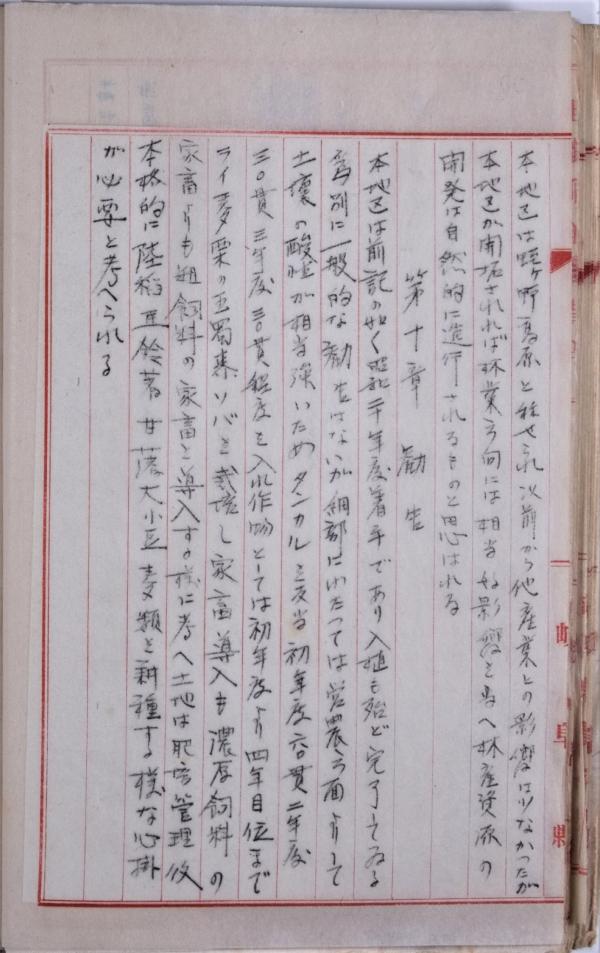 本地区は蛭ヶ野高原と称せられ以前から他産業との影響は少なかつたが
本地区が開拓されれば林業方向には相当な影響を与へ林産資源の
開発は自然的に進行されるものと思はれる
第十章 勧告
本地区は前記の如く昭和二十年度着手であり入植も殆ど完了してゐる
為別に一般的な勧告はないが細部にわたつては営農方面よりして
土壌の酸性が相当強いためタンカルを反当初年度六〇貫二年度
三〇貫三年度三〇貫程度を入れ作物としては初年度より四年目位まで
ライ麦粟の玉蜀黍ソバを栽培し家畜導入も濃厚飼料の
家畜よりも粗飼料の家畜を導入する様に考へ土地は肥培管理後
本格的に陸稲馬鈴薯甘藷大小豆麦類を耕種する様な心掛
が必要と考へられる
岐阜県